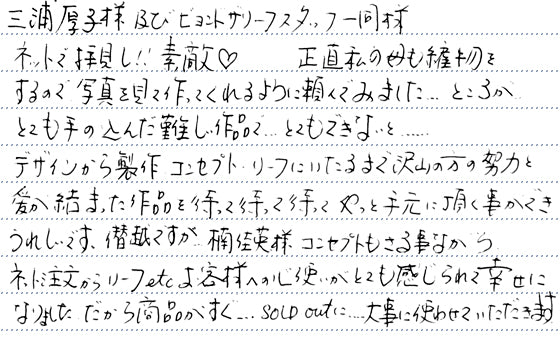 三浦厚子様 及び ビヨンドザリーフスタッフ一同様
ネットで拝見し!! 素敵♡ 正直私の母も縫物を
するので写真を見て作ってくれるように頼んでみました… ところが
とても手の込んだ難しい作品で… とてもできないと……
デザインから製作 コンセプト・リーフにいたるまで沢山の方の努力と
愛が結まった作品を待って待って待って やっと手元に頂く事ができ
うれしいです、僭越ですが 楠佳英様 コンセプトもさる事ながら
ネット注文からリーフetc お客様への心使いがとても感じられて幸せに
なりました だから商品がすぐ… SOLD outに… 大事に使わせていただきます